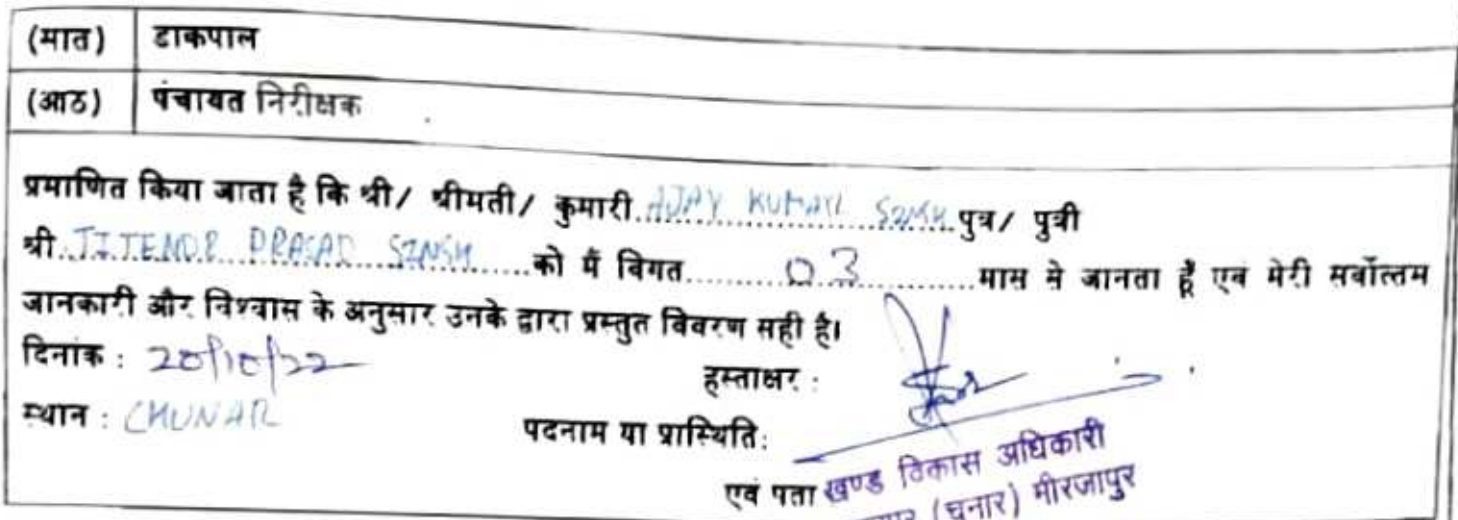 (मात) टाकपाल
(आठ) पंचायत निरीक्षक
प्रमाणित किया जाता है कि श्री/ श्रीमती/ कुमारी AJAY KUMAR SINGH पुत्र/ पुत्री
श्री. JITENDR PRASAD SINGH को मैं विगत 03 मास से जानता हूँ एवं मेरी सर्वोत्तम
जानकारी और विश्वास के अनुसार उनके द्वारा प्रस्तुत विवरण सही है।
दिनांक : 20/10/22 हस्ताक्षर :
स्थान : CHUNAR पदनाम या प्रास्थिति:
एवं पता खण्ड विकास अधिकारी
(चुनार) मीरजापुर